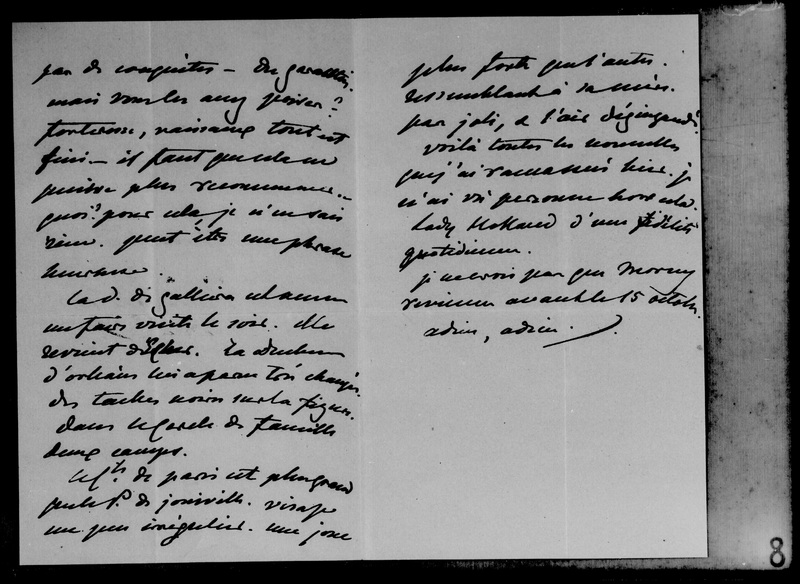 pas de conquêtes – des garanties.
mais vous les avez prises?
forteresse, vaisseaux tout est
fini – il faut que cela ne
puisse plus recommencer.
quoi? pour cela je n'en sais
rien. peut être une phrase
heureuse.
La d. de galliera est venue
me faire visite le soir. Elle
revient d'. La duchesse
d'orléans lui a paru très changée.
des taches noires sur la figure.
dans le cercle de famille
deux camps.
le Cte. de paris est plus grand
que le P. de joinville. visage
un peu irrégulier. une joue
plus forte que l'autre.
ressemblant à sa mère.
pas joli, a l'air dégingandé.
voilà toutes les nouvelles
que j'ai ramassées hier. je
n'ai vu personne hors cela.
Lady Holland d'une fidélité
quotidienne.
je ne crois pas que Morny
revienne avant le 15 octobre.
adieu, adieu.
8